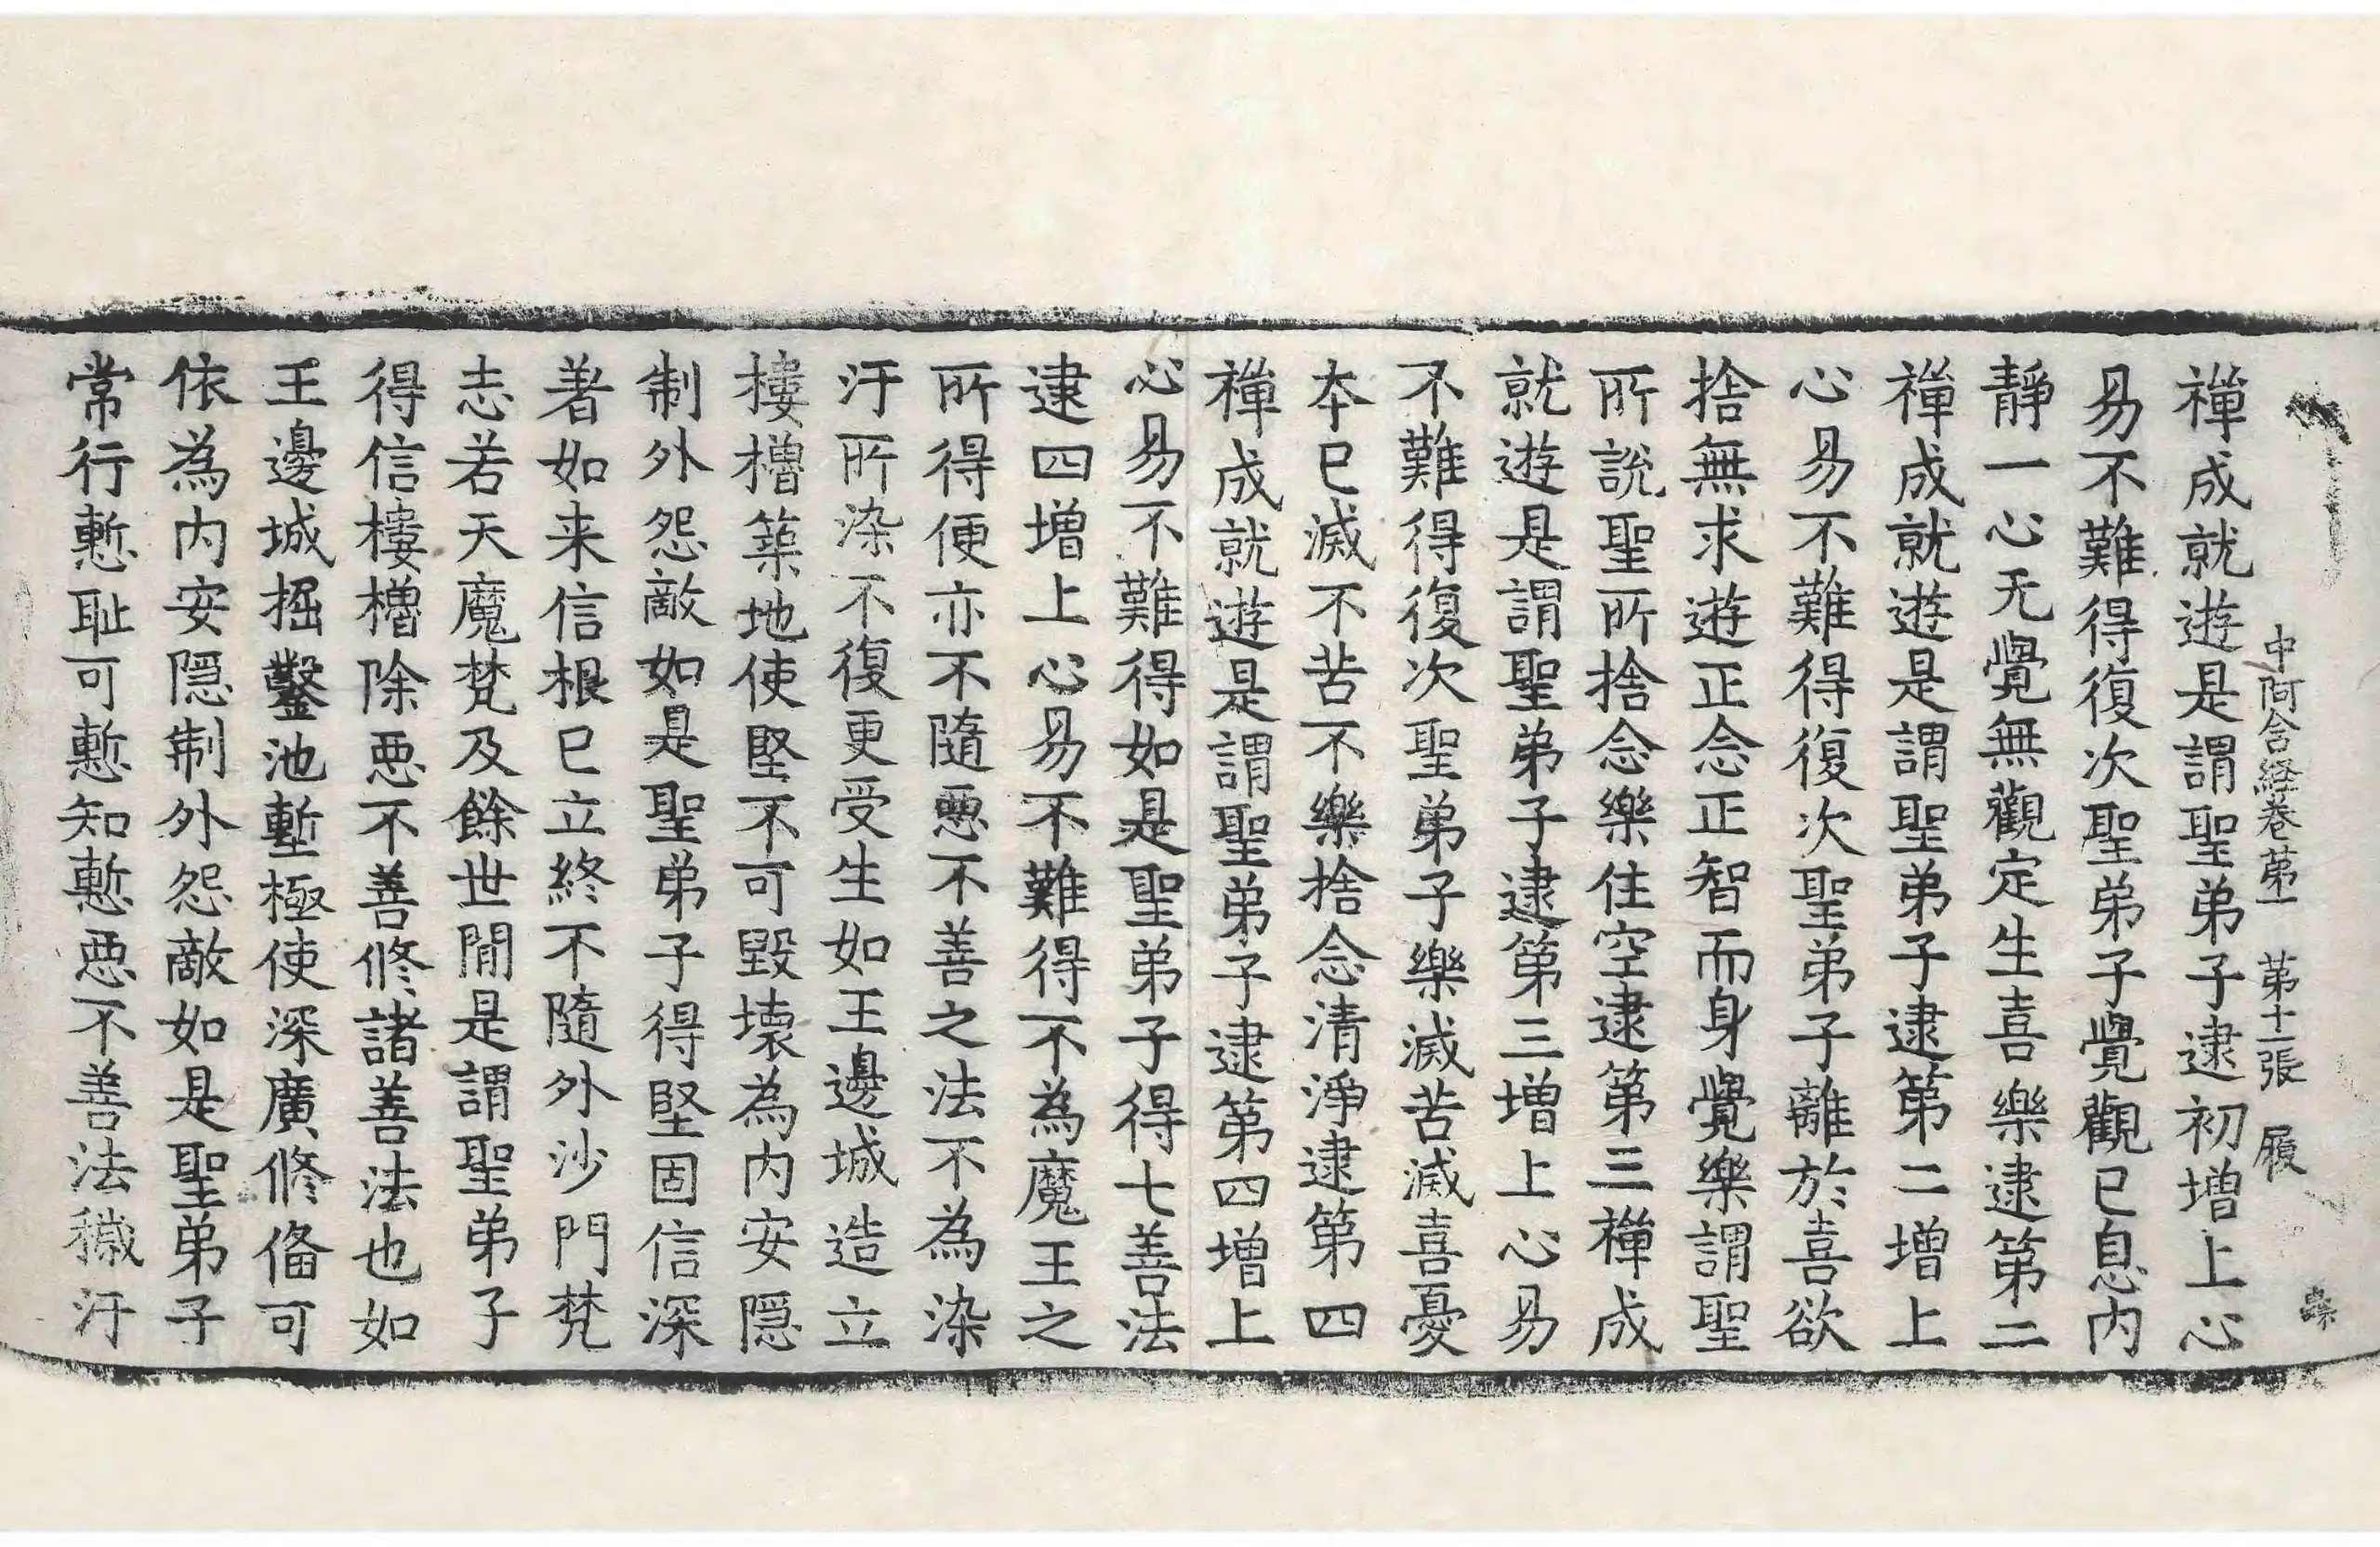 中阿含経卷苐一　苐十一張　履
禪成就遊是謂聖弟子逮初增上心
易不難得復次聖弟子覺觀已息內
靜一心无覺無觀定生喜樂逮第二
禪成就遊是謂聖弟子逮第二增上
心易不難得復次聖弟子離於喜欲
捨無求遊正念正智而身覺樂謂聖
所說聖所捨念樂住空逮第三禪成
就遊是謂聖弟子逮第三增上心易
不難得復次聖弟子樂滅苦滅喜憂
本已滅不苦不樂捨念清淨逮第四
禪成就遊是謂聖弟子逮第四增上
心易不難得如是聖弟子得七善法
逮四增上心易不難得不為魔王之
所得便亦不隨惡不善之法不為染
汙所染不復更受生如王邊城造立
樓櫓築地使堅不可毀壞為內安隱
制外怨敵如是聖弟子得堅固信深
著如来信根已立終不隨外沙門梵
志若天魔梵及餘世間是謂聖弟子
得信樓櫓除惡不善修諸善法也如
王邊城掘鑿池塹極使深廣修俻可
依為內安隱制外怨敵如是聖弟子
常行慙恥可慙知慙惡不善法穢汙